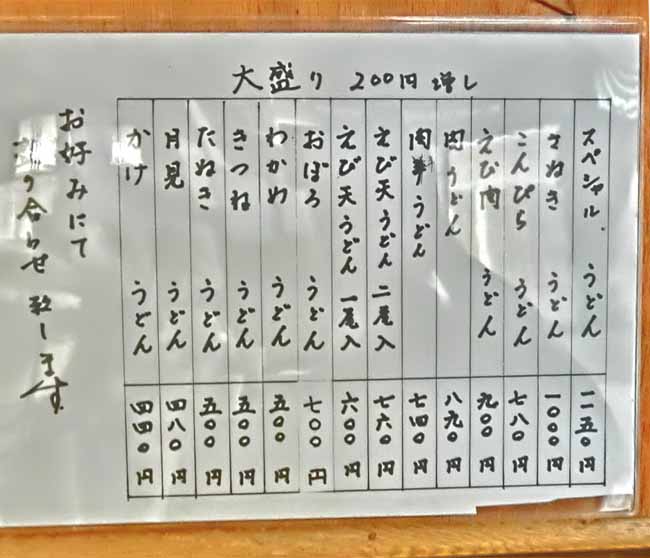 大盛り 200円増し
スペシャル うどん 一一五〇円
さぬき うどん 一〇〇〇円
こんぴら うどん 七八〇円
えび肉 うどん 九〇〇円
肉うどん 八九〇円
肉半うどん 七四〇円
えび天うどん 二尾入 七六〇円
えび天うどん 一尾入 六〇〇円
おぼろ うどん 七〇〇円
わかめ うどん 五〇〇円
きつね うどん 五〇〇円
たぬき うどん 五〇〇円
月見 うどん 四八〇円
かけ うどん 四四〇円
お好みにて
盛り合わせ致します